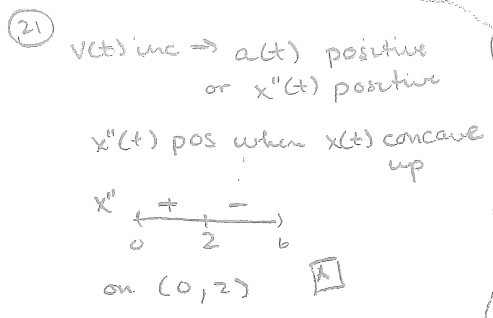 21
v(t) inc ⇒ a(t) positive
or x"(t) positive
x"(t) pos when x(t) concave
up
x" + -
0 2 6
on (0,2) A